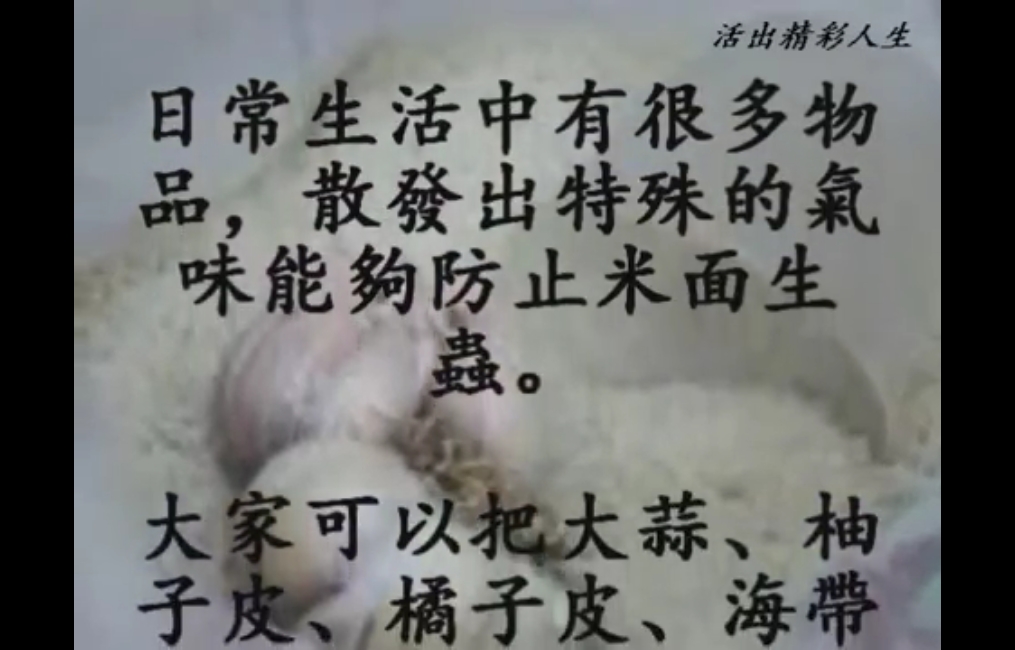 活出精彩人生
日常生活中有很多物
品，散發出特殊的氣
味能夠防止米面生
蟲。
大家可以把大蒜、柚
子皮、橘子皮、海帶